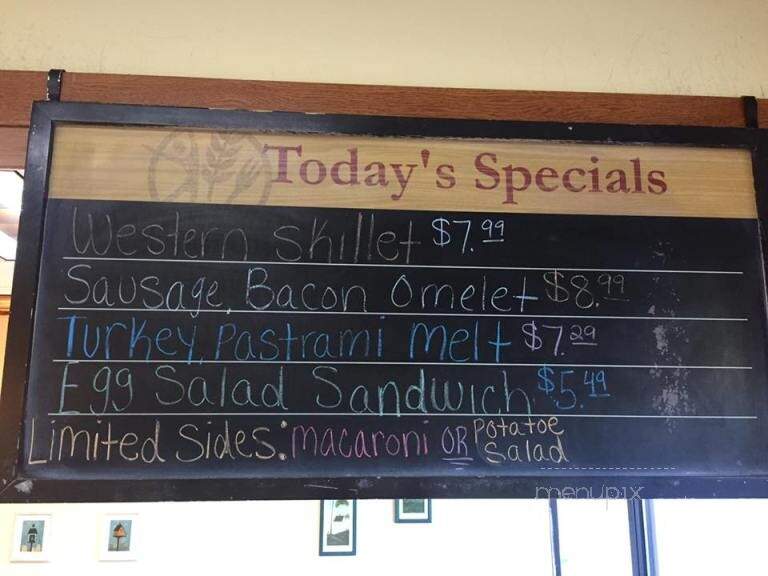 Today's Specials
Western Skillet $7.99
Sausage, Bacon Omelet $8.99
Turkey, Pastrami Melt $7.29
Egg Salad Sandwich $5.49
Limited Sides: Macaroni OR Potatoe
Salad
menupix